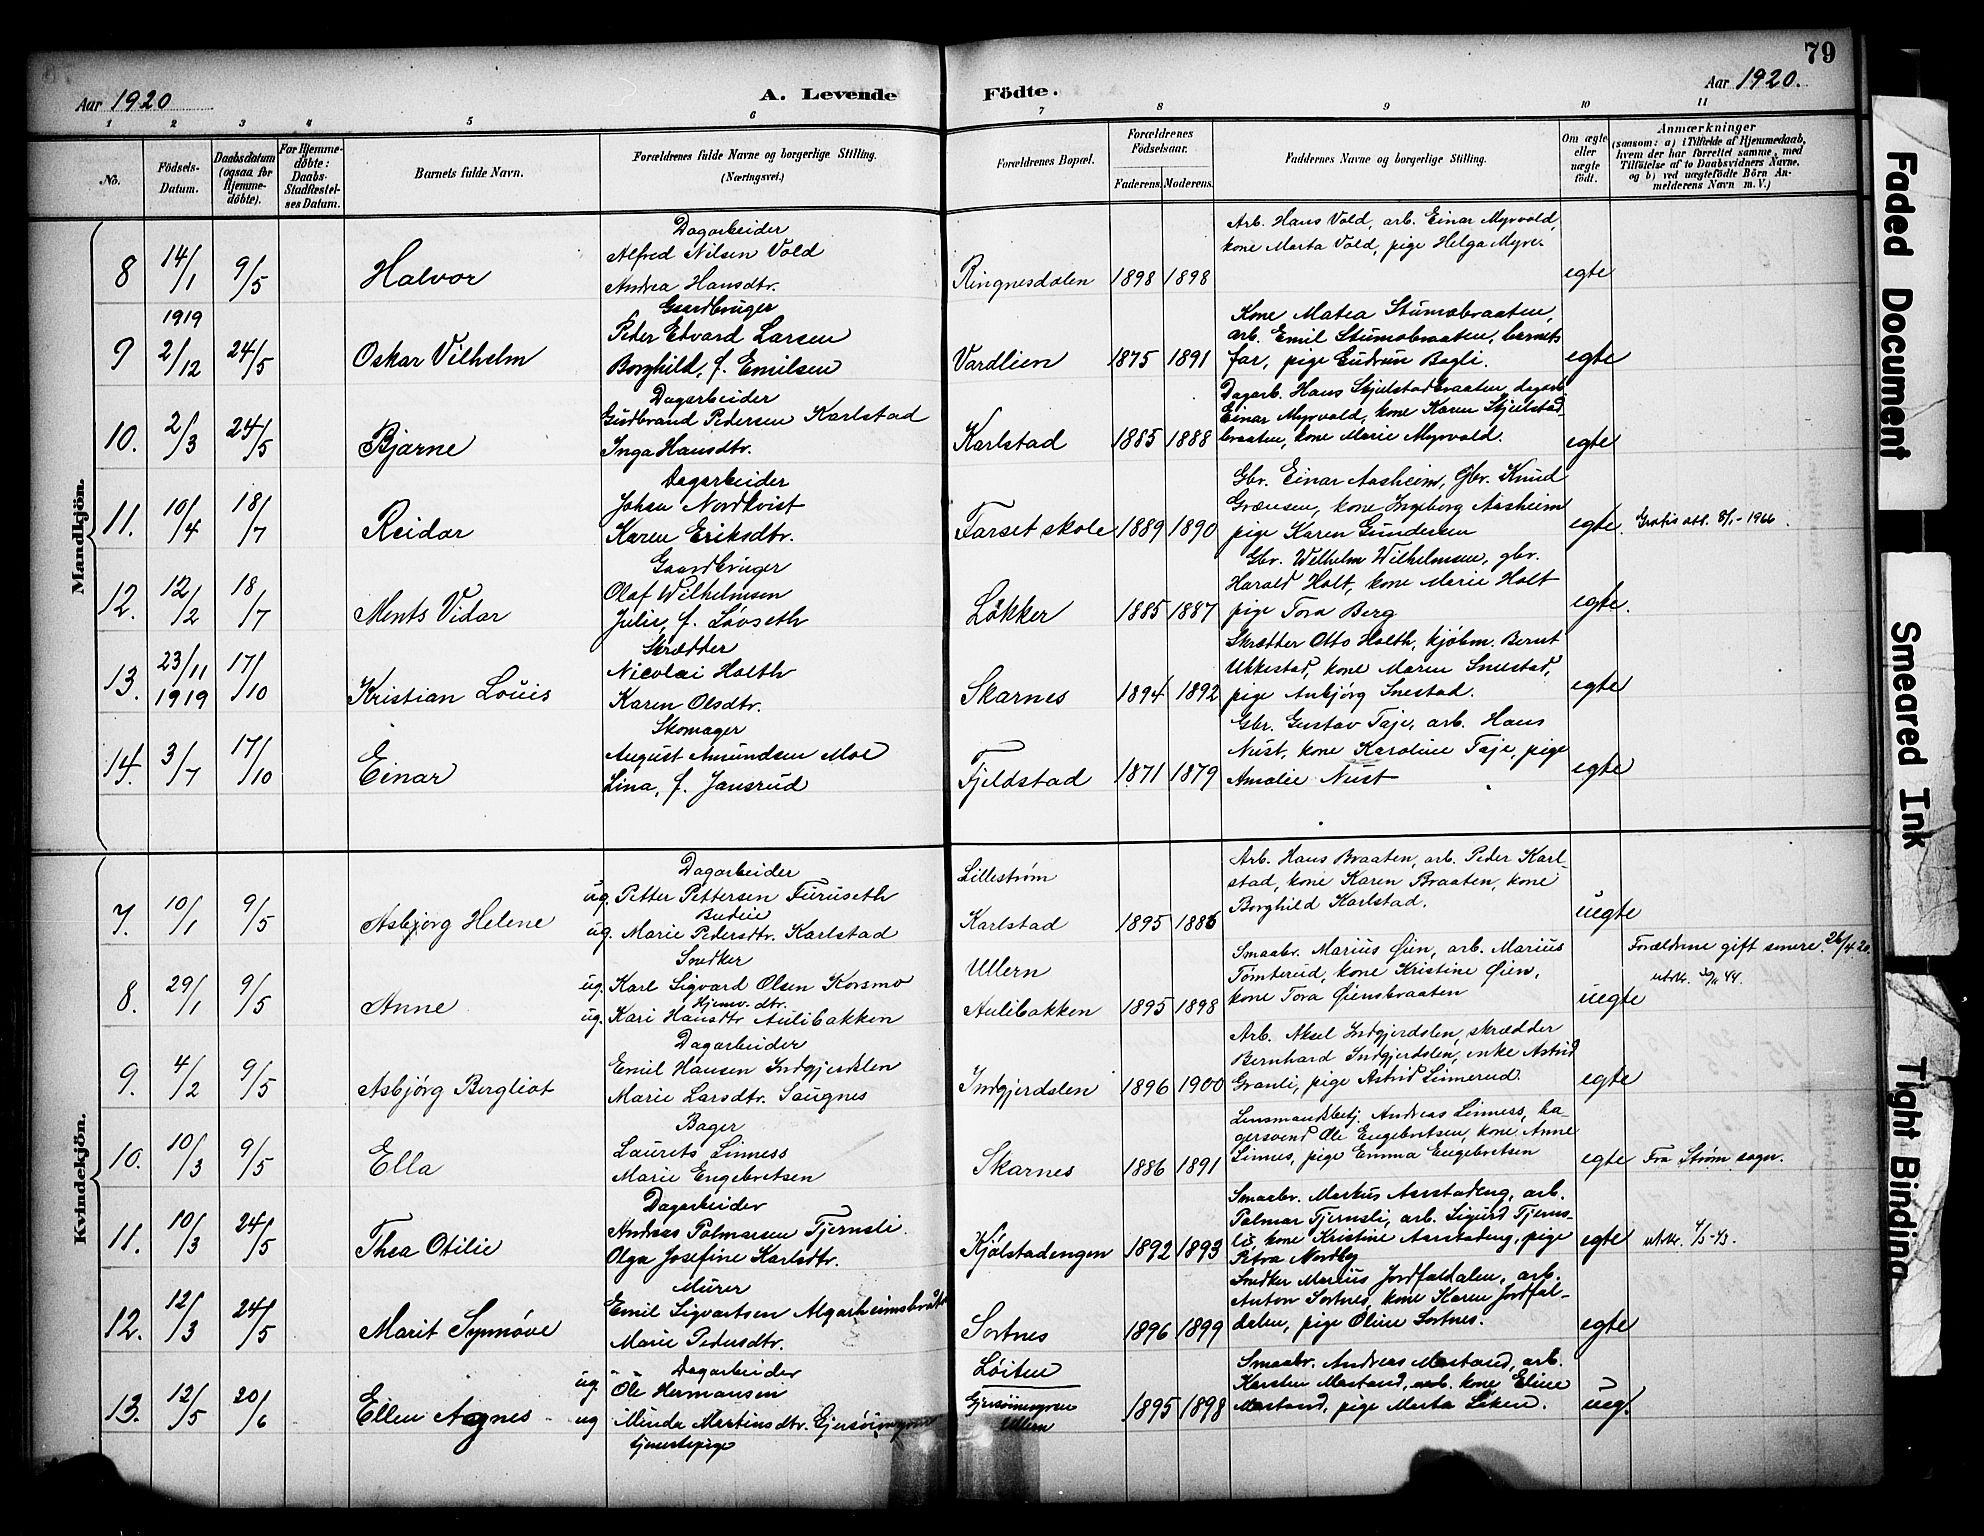 79
Aar 1920
A. Levende Födte.
Aar 1920.
1 2 3 4 5 6 7 8 9 10 11
No.
Födsels-
Datum.
Daabsdatum
(ogsaa for
Hjemme-
döbte).
For Hjemme-
döbte:
Daabs-
Stadfæstel-
ses Datum.
Barnets fulde Navn.
Forældrenes fulde Navne og borgerlige Stilling.
(Næringsvei.)
Forældrenes Bopæl.
Forældrenes
Födselsaar.
Faderens. Moderens.
Faddernes Navne og borgerlige Stilling.
Om ægte
eller
uægte
födt.
Anmærkninger
(saasom: a) i Tilfælde af Hjemmedaab,
hvem der har forrettet samme, med
Tilföielse af to Daabsvidners Navne.
og b) ved uægtefödte Börn An-
melderens Navn m. V.)
Mandkjön.
8 14/1 9/5 Halvor
Dagarbeider
Alfred Nilsen Vold
Andrea Hansdtr.
Ringnesdalen 1898 1898
Arb. Hans Vold, arb. Einar Myrvold,
kone Marta Vold, pige Helga Myrv-
egte
9 1919 2/12 24/5 Oskar Vilhelm
Gaardbruger
Peder Edvard Larsen
Borghild, f. Emilsen
Vardlien 1875 1891
Kone Matea Stumobraaten,
arb. Emil Stumobraaten, barnets
far, pige Gudrun Bagli.
egte
10. 2/3 24/5 Bjarne
Dagarbeider
Gudbrand Pedersen Karlstad
Inga Hansdtr.
Karlstad 1885 1888
Dagarb. Hans Skjelstadbraaten, dagarb.
Einar Myrvold, kone Karen Skjelstad
braaten, kone Marie Myrvold.
egte
11. 10/4 18/7 Reidar
Dagarbeider
Johan Nordkvist
Karen Eriksdtr.
Farset skole 1889 1890
Gbr. Einar Aasheim, Gbr. Knud
Grænsen, kone Ingeborg Aasheim
pige Karen Gundersen
egte. Gratis att. 8/1-1966.
12. 12/2 18/7 Ments Vidar
Gaardbruger
Olaf Wilhelmsen
Julie, f. Lövseth
Løkker 1885 1887
Gbr. Wilhelm Wilhelmsen, gbr.
Harald Holt, kone Marie Holt
pige Tora Berg
egte.
13. 23/11 1919 17/10 Kristian Louis
Skrædder
Nicolai Holth
Karen Olsdtr.
Skarnes 1894 1892
Skrædder Otto Holth, kjöbm. Bernt
Ukkestad, kone Maren Snestad,
pige Anbjörg Snestad.
egte
14. 3/7 17/10 Einar
Skomager
August Amundsen Moe
Lina, f. Jansrud
Fjeldstad 1871 1879
Gbr. Gustav Taje, arb. Hans
Nust, kone Karoline Taje, pige
Amalie Nust
egte
Kvindekjön.
7. 10/1 9/5 Asbjørg Helene
Dagarbeider
ug. Petter Pettersen Furuseth
Budeie
ug. Marie Pedersdtr. Karlstad
Lillestrøm
Karlstad 1895 1886
Arb. Hans Braaten, arb. Peder Karl-
stad, kone Karen Braaten, kone
Borghild Karlstad.
uegte
8. 29/1 9/5 Anne
Snedker
ug. Karl Sigvard Olsen Korsmo
Hjemv. dtr.
ug. Kari Hansdtr Aulibakken
Ullern
Aulibakken 1895 1898
Smaabr. Marius Øien, arb. Marius
Tømterud, kone Kristine Øien,
kone Tora Øiensbraaten
uegte
Forældrene gift senere 26/4 20.
9. 4/2 9/5 Asbjörg Bergliot
Dagarbeider
Emil Hansen Indgjerdslen
Marie Larsdtr. Saugnes
Indgjerdslen 1896 1900
Arb. Aksel Indgjerdslen, skrædder
Bernhard Indgjerdslen, enke Astrid
Granli, pige Astrid Linnerud.
egte
10. 10/3 9/5 Ella
Bager
Laurets Linness
Marie Engebretsen
Skarnes 1886 1891
Lensmandsbetj. Andreas Linness, ba-
gersvend Ole Engebretsen, kone Anne
Linnes, pige Emma Engebretsen
egte Fra Strøm sogn.
11. 10/3 24/5 Thea Otilie
Dagarbeider
Andreas Palmersen Tjernsli.
Olga Josefine Karlsdtr.
Kjølstadengen 1892 1893
Smaabr. Markus Aarstadeng, arb.
Palmar Tjernsli, arb. Sigurd Tjerns-
li, kone Kristine Aarstadeng, pige
Petra Nordby
egte
12. 12/3 24/5 Marit Synnöve
Murer
Emil Sigvartsen Algarheimsbråt
Marie Pedersdtr.
Sortnes 1896 1899
Snedker Marius Jordfaldalen, arb.
Anton Sortnes, kone Karen Jordfal-
dalen, pige Oline Sortnes.
egte
13. 12/5 20/6 Ellen Agnes
Dagarbeider
ug. Ole Hermansen
ug Minda Martinsdtr. Gjersöimogren
tjenestepige
Løiten
Ullern 1895 1898
Smaabr. Andreas Mastand, arb.
Karsten Mastand, kone Eline
Mastand, pige Marta Liken.
ueg.
Faded Document
Smeared Ink
Tight Binding